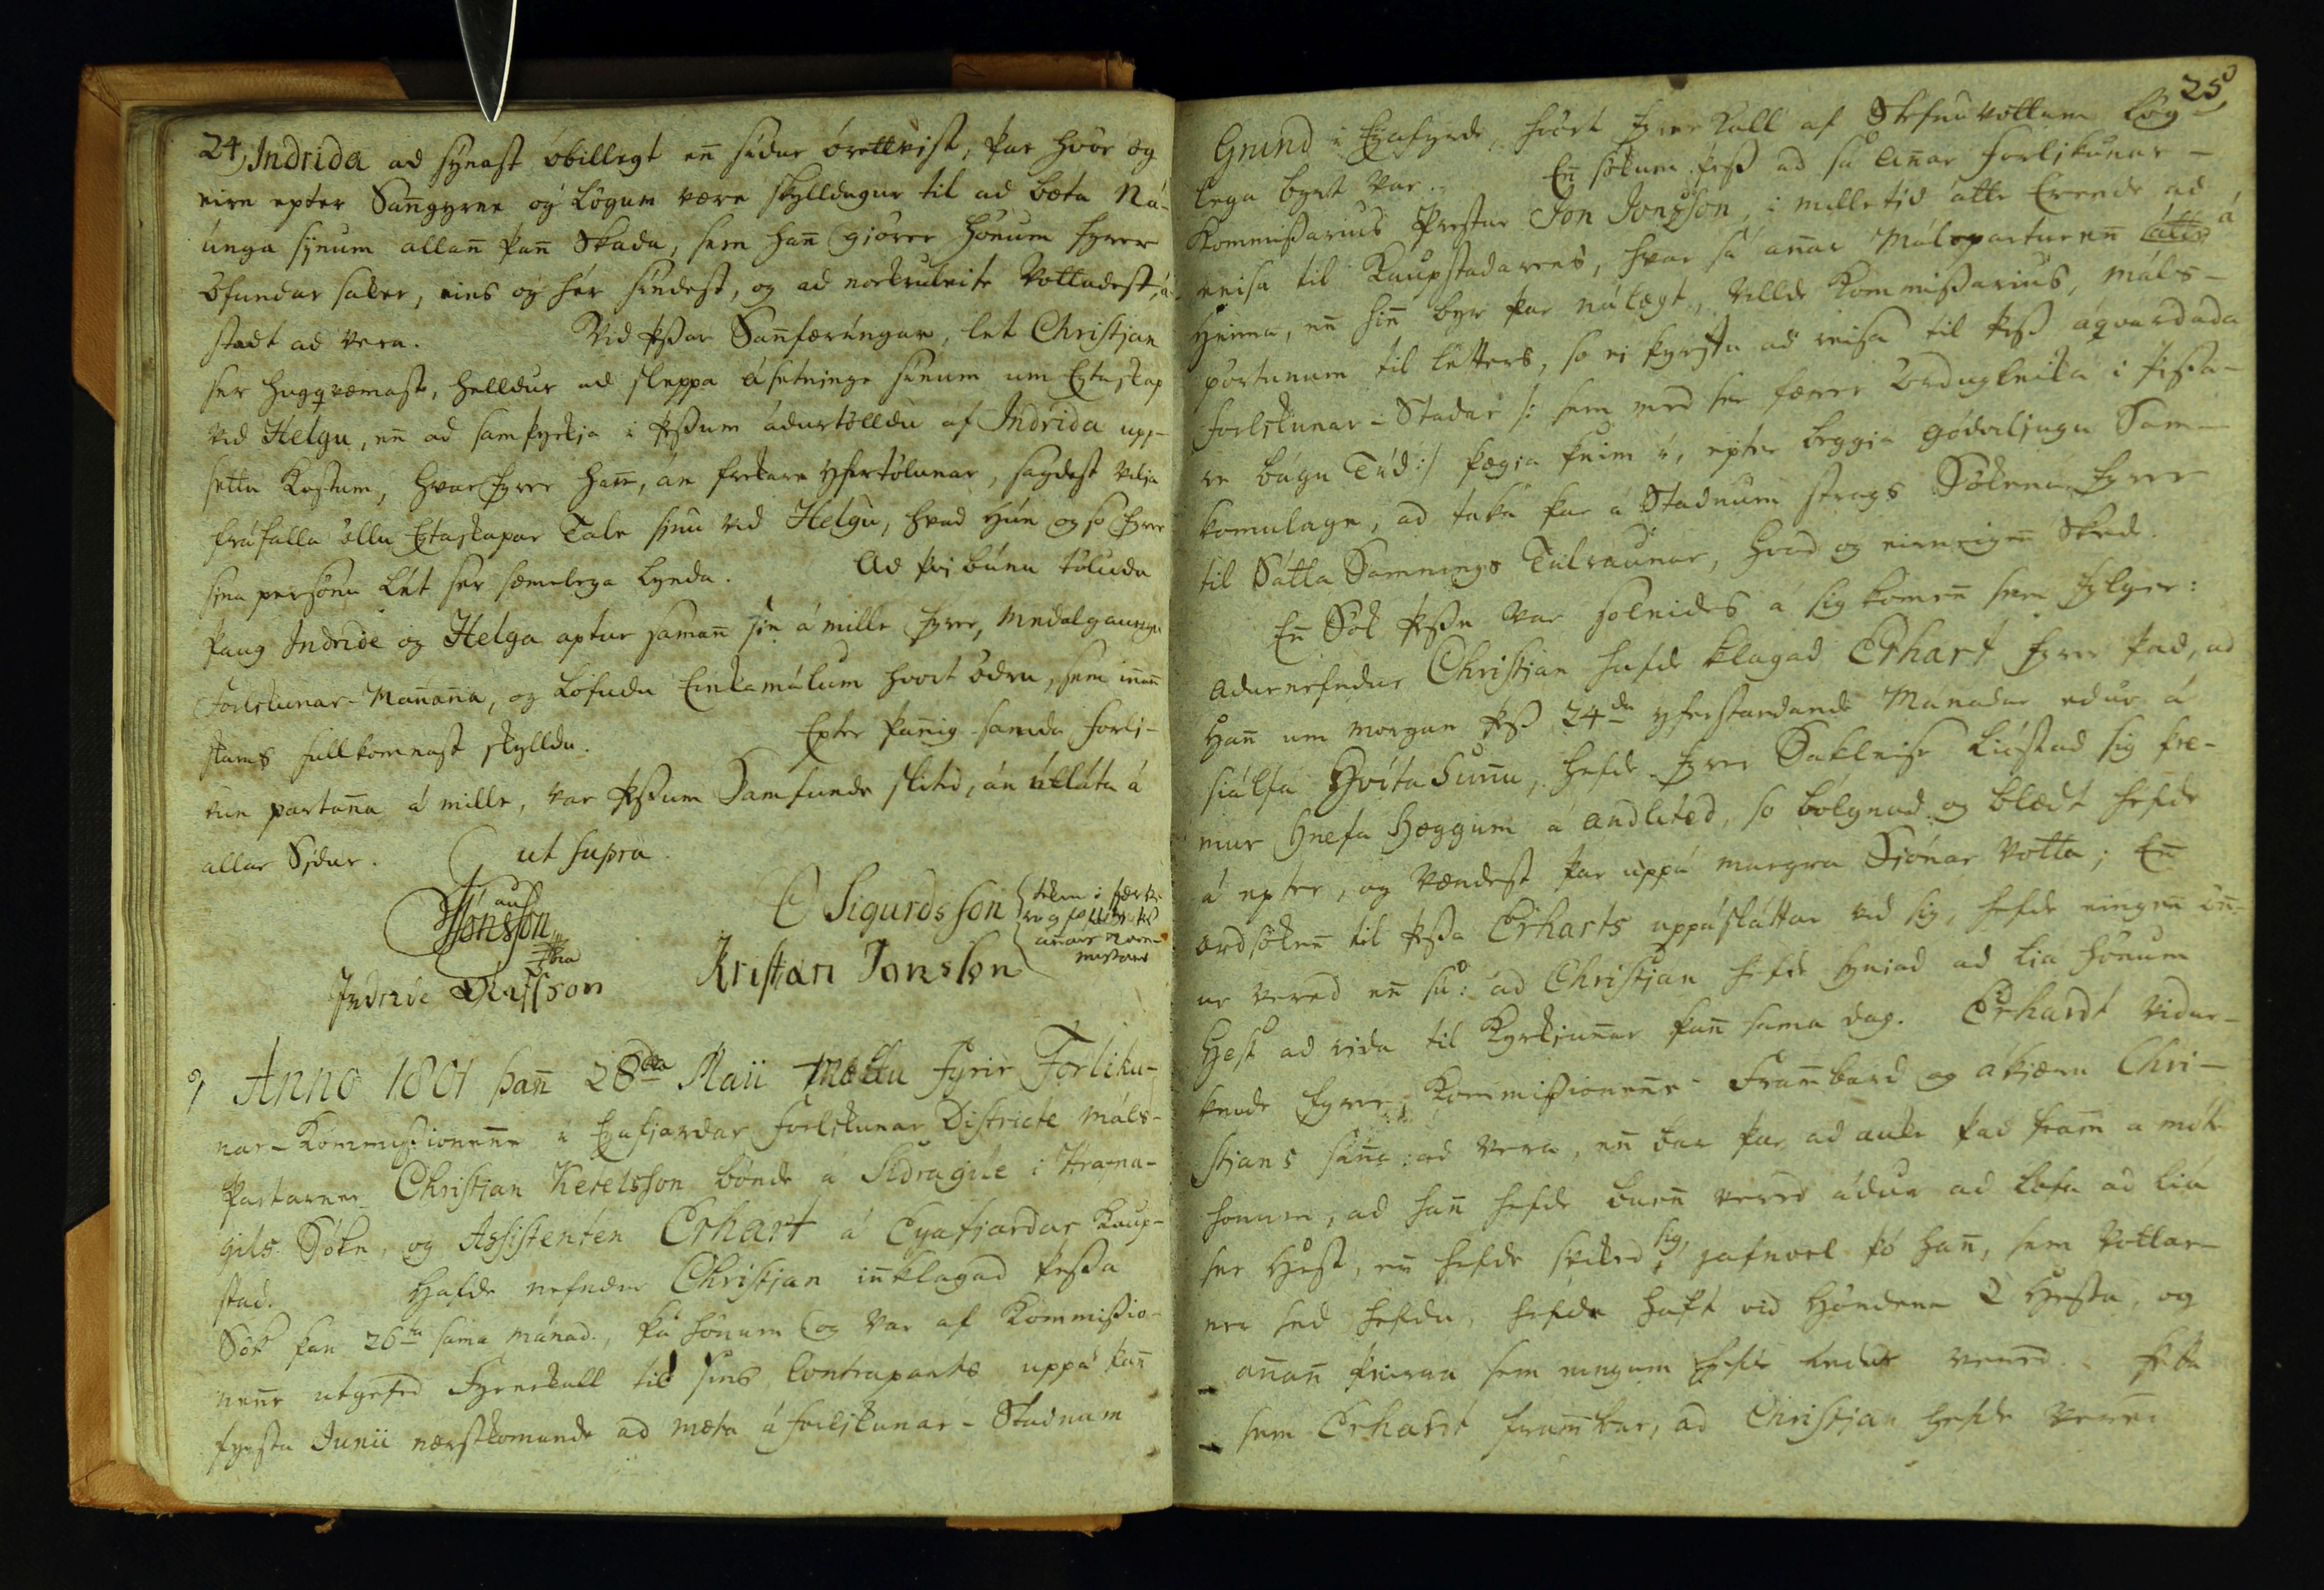 24, Indrida ad synast óbillegt en̄ sidur órettvist, þar hvör og
eirn epter San̄gyrne og Lögum være skylldugur til ad bæta Ná-
únga sijnum allan̄ þan̄ Skada, sem han̄ giörer hönum fyrer
Öfundar saker, eins og hér sindest, og ad
stadt ad vera. Vid þessar San̄færingar, let Christjan
ser hugqvæmast, helldur ad sleppa ásetninge sinum um Egtaskap
vid Helgu, en̄ ad samþyckja i þessum ádurtölldu af Indrida upp-
settu Kostum, hvar fyrer han̄, án frekare yfertölunar, sagdest vilja
fráfalla öllu Egtaskapar Tale sinu vid Helgu, hvad hún og so fyrer
sina persónu lét ser semelega lynda. Ad þvi búnu töludu
þaug Indride og Helga aptur saman̄ sin á mille fyrer, Medalgaungu
Forlikunar-Man̄an̄a, og lofudu Einkamálum hvort ödru, sem innan
skams fullkomnast skylldu. Epter þan̄ig samda forli-
kun partan̄a á mille, var þessum Samfunde slited, án útláta á
allar Sijdur. ut supra
Jónsson C Sigurdsson
Indride Kristian Jonsson
9, Anno 1801 þan̄ 28da Maii mættu fyrir Forliku-
nar-Kommissionen̄e i Eyafjardar Forlikunar Districte máls-
partarner Christian Ketelsson bónde á Sidragile i Hrafna-
gils Sókn, og Assistenten Erhart á Eyafjardar Kaup-
stad. Hafde nefndur Christjan in̄klagad þessa
Sök þan 26ta sama mánad., þá hönum og var af Kommissio-
nen̄e utgefed Fyrerkall til sins Contraparts uppá þan̄
fyrsta Junii næstkomande ad mæta á forlikunar-Stadnum
25
Grund i Eyafyrde, hvört fyrerkall af Stefnuvottum lög-
lega byrt var. En̄ sökum þess ad sá an̄ar forlikunar-
Kommissarius Prestur Jon Jonsson, i milletid átte Erende ad
reisa til Kaupstadarens, hvar sá an̄ar Málsparturen̄ átte á
heima, en̄ hin̄ byr þar nálægt, villde Kommissarius, máls-
pörtunum til létters, so ei þyrftu ad reisa til þess áqvardada
forlikunar-Stadar /: sem med ser færer ördugleika i þessa-
re bágu Tid :/ þægia þeim i, epter beggia gódviljugu Sam-
komulage, ad taka þar á Stadnum strags Sökena fyrer
til Sátta Samnings Tilraunar, hvad og eirneigen̄ Skede.
En̄ Sök þesse var soleides á sig komen̄ sem fylger:
Adurnefndur Christjan hafde klagad Erhart fyrer þad, ad
Han̄ um morgun þess 24da yferstandande Mánadar edur á
siálfa Hvíta Sun̄u, hefde fyrer Sakleise liostad sig þre-
mur Hnefa Höggum á andlited, so bólgnad og blædt hefde
á epter, og vændest þar uppá margra Sjónar Votta; En̄
ordsöken̄ til þessa Erharts uppásláttar vid sig, hefde eingen̄ ön̄-
ur vered en̄ sú: ad Christjan hefde synjad ad lia hönum
Hest ad rida til Kyrkjun̄ar þan̄ sama dag. Erhardt vidur-
kende fyrer Kommissionen̄e Fram̄burd og ákjæru Chri-
stjans san̄a ad vera, en̄ bar þar ad auke þad fram̄ á móte
honum, ad han̄ hefde buen̄ vered ádur ad lofa ad liá
ser Hest, en̄ hefde sviked sig, jafnvel þó han̄, sem Vottar-
ner sed hefdu, hefde haft vid Höndena 2 Hesta, og
an̄an̄ þeirra sem eingum hefde ledur vered. Þetta
sem Erhardt fram̄bar, ad Christjan hefde vered